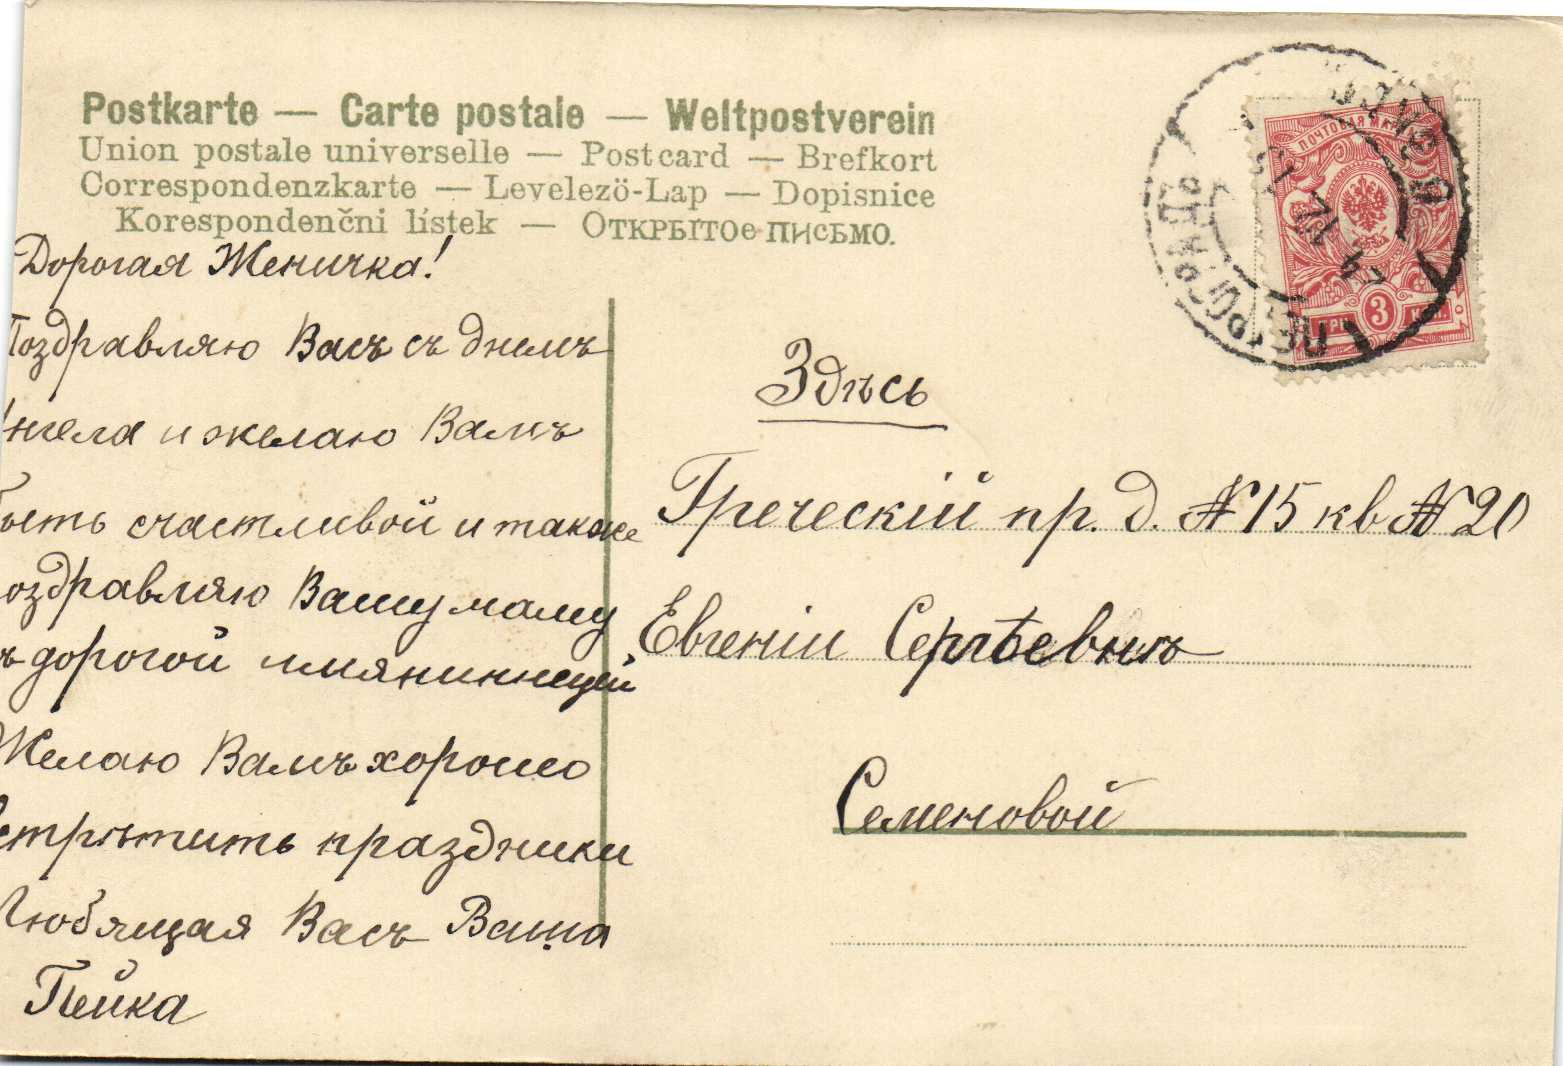 Postkarte — Carte postale — Weltpostverein
Union postale universelle — Postcard — Brefkort
Correspondenzkarte — Levelezö-Lap — Dopisnice
Korespondenčni lístek — Открытое письмо.
Дорогая Женичка!
Поздравляю Васъ съ днемъ
Ангела и желаю Вамъ
быть счастливой и также
поздравляю Вашу маму
съ дорогой имянинницей
Желаю Вамъ хорошо
встрѣтить праздники
Любящая Васъ Ваша
Пейка
Здѣсь
Греческій пр. д. № 15 кв № 20
Евгеніи Сергѣевнѣ
Семеновой
ПОЧТОВАЯ МАРКА
ТРИ 3 КОП.
ПЕТРОГРАДЪ